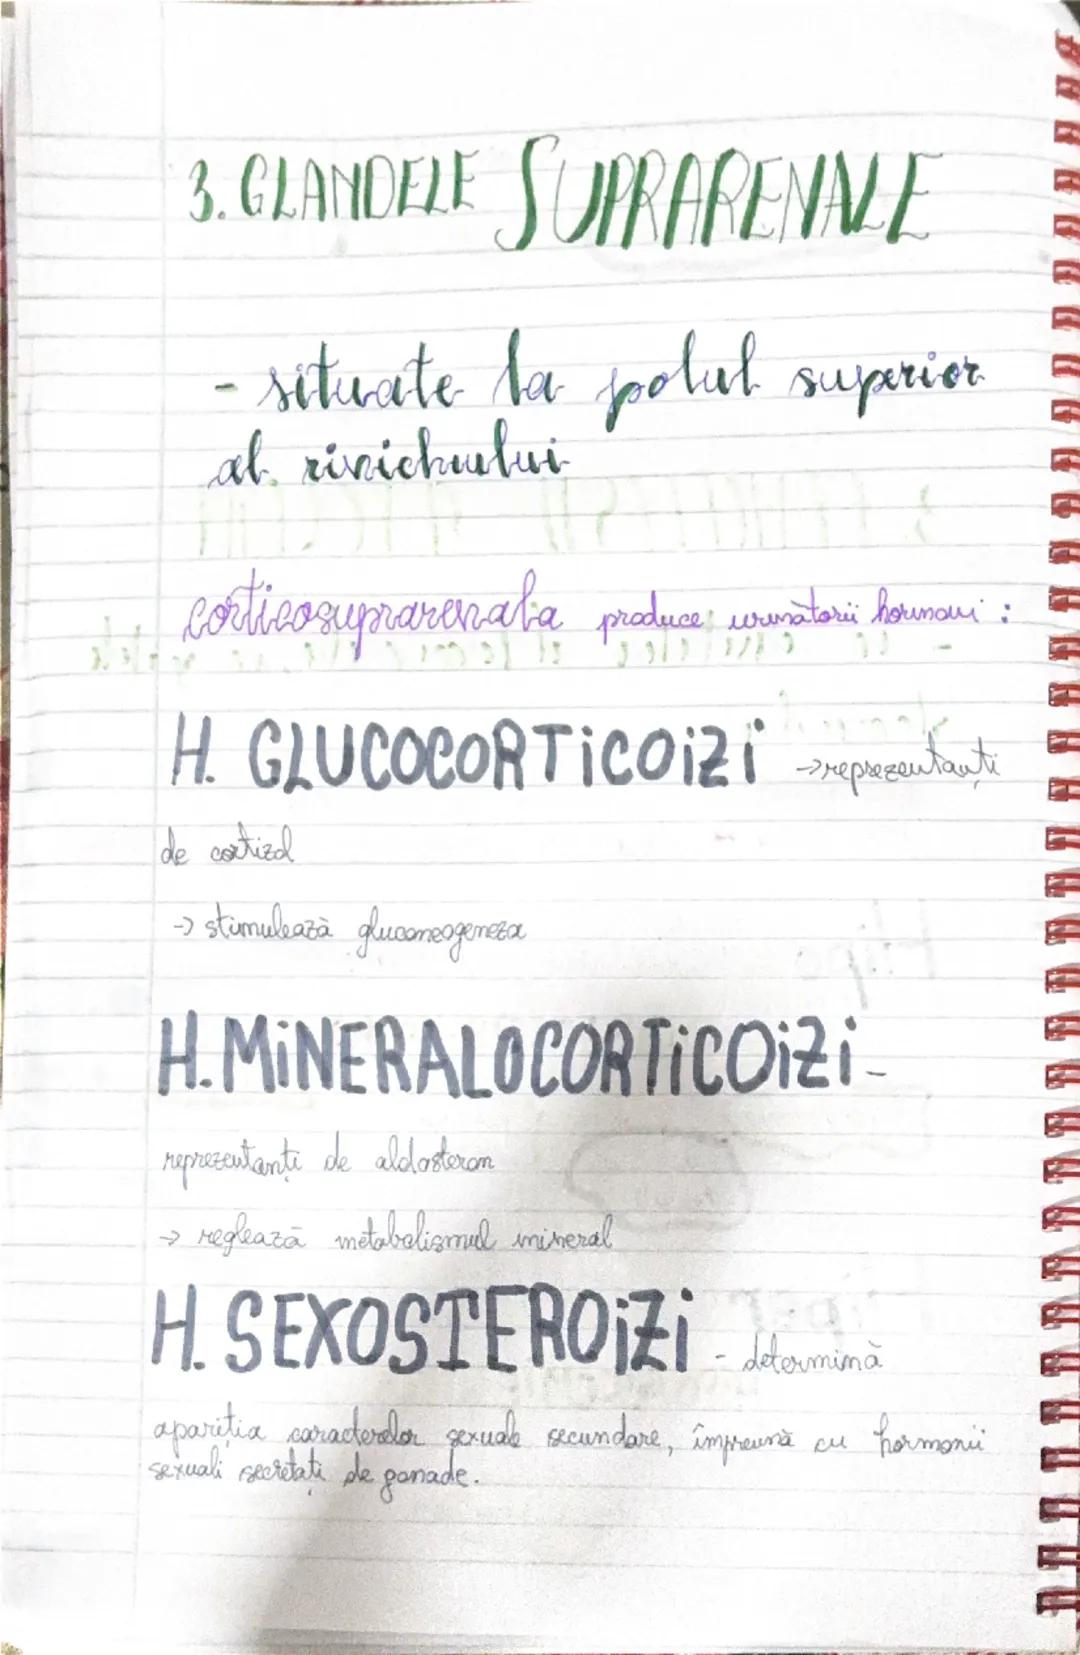 3. GLANDELE SUPRARENALE
- situate la polul superior
al rinichiului
corticosuprarenala produce următorii hormoni :
H. GLUCOCORTICOIZI → reprezentanți
de cortizol
→ stimulează gluconeogeneza
H. MINERALOCORTICOIZI -
reprezentanți de aldosteron
→ reglează metabolismul mineral
H. SEXOSTEROIZI - determină
apariția caracterelor sexuale secundare, împreună cu hormonii
sexuali secretați de gonade.